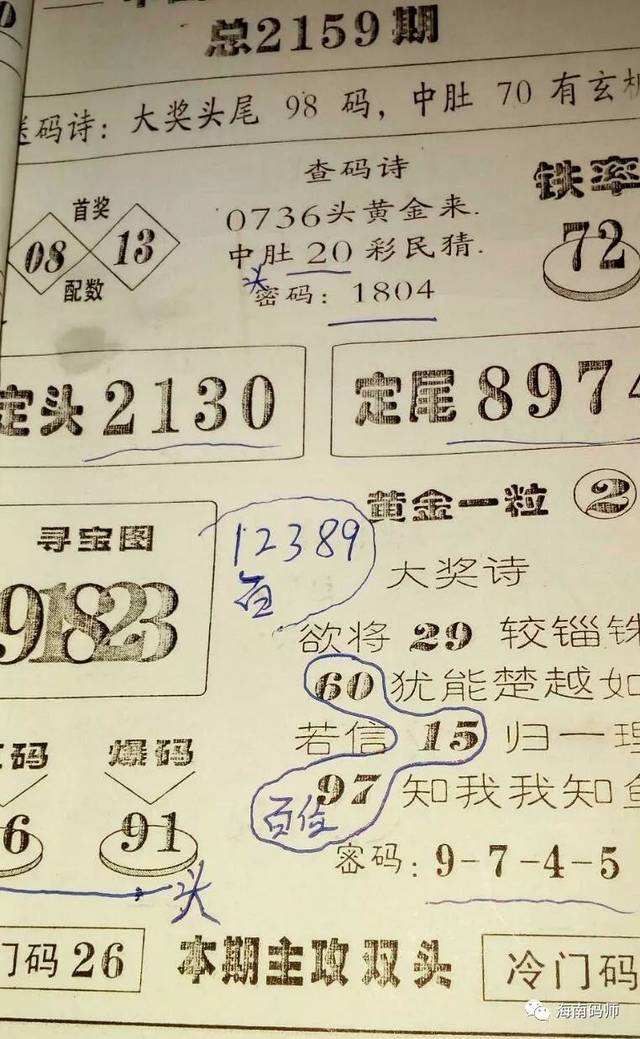 总2159期
送码诗：大奖头尾 98 码，中肚 70 有玄机
查码诗
0736头黄金来.
中肚 20 彩民猜.
头
密码：1804
首奖
08 13
配数
铁率
72
定头 2130
定尾 8974
寻宝图
91823
12389
百
黄金一粒 2
大奖诗
欲将 29 较锱铢
60 犹能楚越如
若信 15 归一理
97 知我我知鱼
百位
密码: 9-7-4-5
码 爆码
6 91
头
门码 26
本期主攻双头
冷门码
海南码师